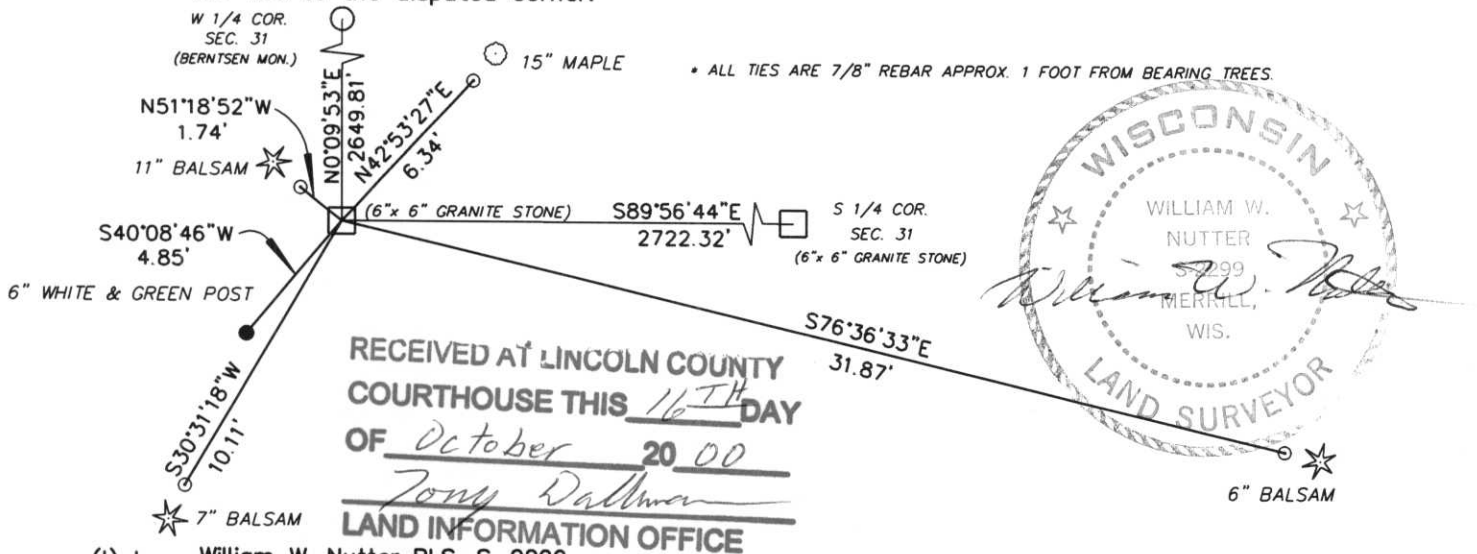 disputed corner.
W 1/4 COR.
SEC. 31
(BERNTSEN MON.)
15" MAPLE
• ALL TIES ARE 7/8" REBAR APPROX. 1 FOOT FROM BEARING TREES.
N51°18'52"W
1.74'
11" BALSAM
N0°09'53"E
2649.81'
N42°53'27"E
6.34'
(6"x 6" GRANITE STONE)
S89°56'44"E
2722.32'
S 1/4 COR.
SEC. 31
(6"x 6" GRANITE STONE)
S40°08'46"W
4.85'
6" WHITE & GREEN POST
S30°31'18"W
10.11'
7" BALSAM
S76°36'33"E
31.87'
6" BALSAM
WISCONSIN
WILLIAM W.
NUTTER
S-2299
MERRILL,
WIS.
LAND SURVEYOR
William W. Nutter
RECEIVED AT LINCOLN COUNTY
COURTHOUSE THIS 16TH DAY
OF October 20 00
Tony Dallman
LAND INFORMATION OFFICE
William W. Nutter